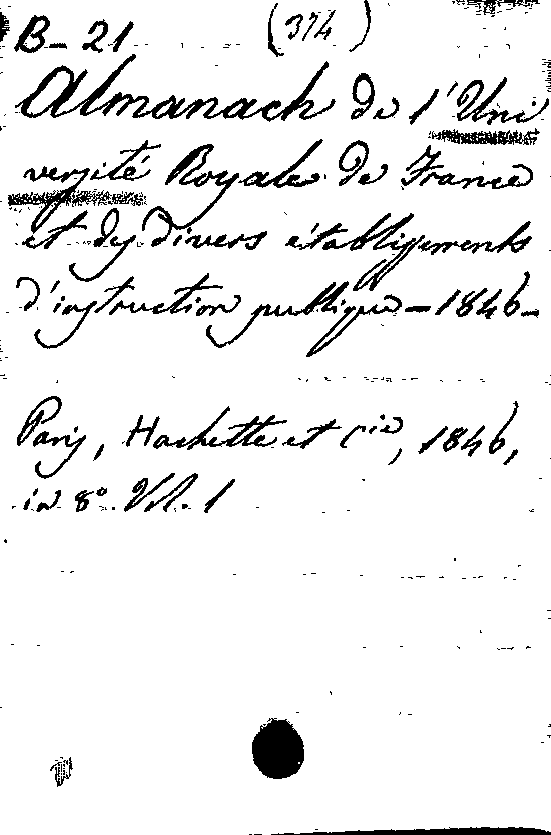 B-21 (374)
Almanach de l'Uni
versité Royale de France
et des divers établissements
d'instruction publique - 1846 -
Paris, Hachette et Cie, 1846,
in 8° Vol. 1